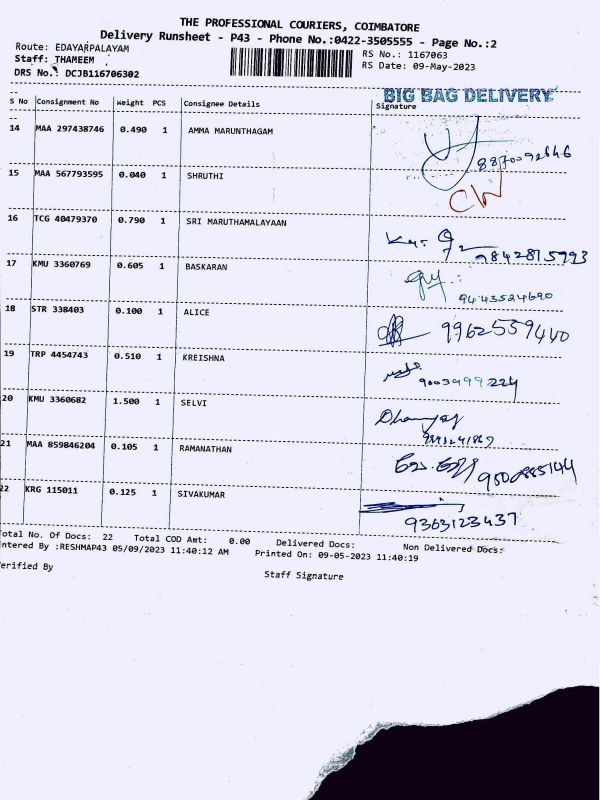 THE PROFESSIONAL COURIERS, COIMBATORE
Delivery Runsheet - P43 - Phone No.:0422-3505555 - Page No.:2
Route: EDAYARPALAYAM
RS No.: 1167063
Staff: THAMEEM
RS Date: 09-May-2023
DRS No.: DCJB116706302
BIG BAG DELIVERY
S No Consignment No Weight PCS Consignee Details Signature
14 MAA 297438746 0.490 1 AMMA MARUNTHAGAM
15 MAA 567793595 0.040 1 SHRUTHI
16 TCG 40479370 0.790 1 SRI MARUTHAMALAYAAN
9842815993
17 KMU 3360769 0.605 1 BASKARAN
9443524690
18 STR 338403 0.100 1 ALICE
9962559440
19 TRP 4454743 0.510 1 KREISHNA
9003999224
20 KMU 3360682 1.500 1 SELVI
21 MAA 859846204 0.105 1 RAMANATHAN
9500885144
22 KRG 115011 0.125 1 SIVAKUMAR
9363123437
otal No. Of Docs: 22 Total COD Amt: 0.00 Delivered Docs: Non Delivered Docs:
ntered By :RESHMAP43 05/09/2023 11:40:12 AM Printed On: 09-05-2023 11:40:19
erified By
Staff Signature